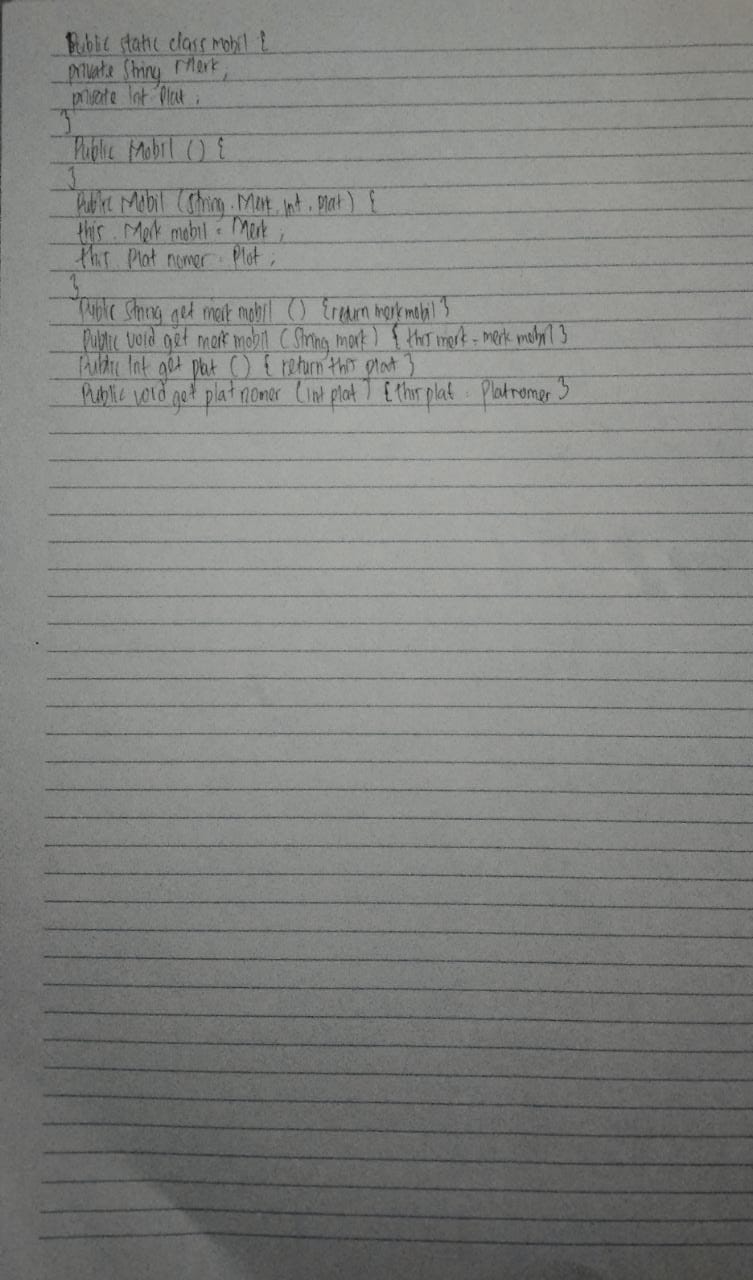 Public static class mobil {
private String Merk;
private Int Plat;
}
Public Mobil () {
}
Public Mobil (String . Merk, int . plat) {
this . Merk mobil = Merk ;
this . Plat nomer = Plat ;
}
Public String get merk mobil () { return merkmobil }
Public void get merk mobil (String merk) { this merk = merk mobil }
Public Int get plat () { return this plat }
Public void get plat nomer (int plat) { this plat = Plat nomer }